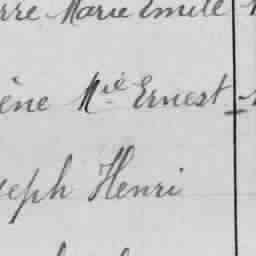 rre Marie Emile
ène Mie Ernest
seph Henri